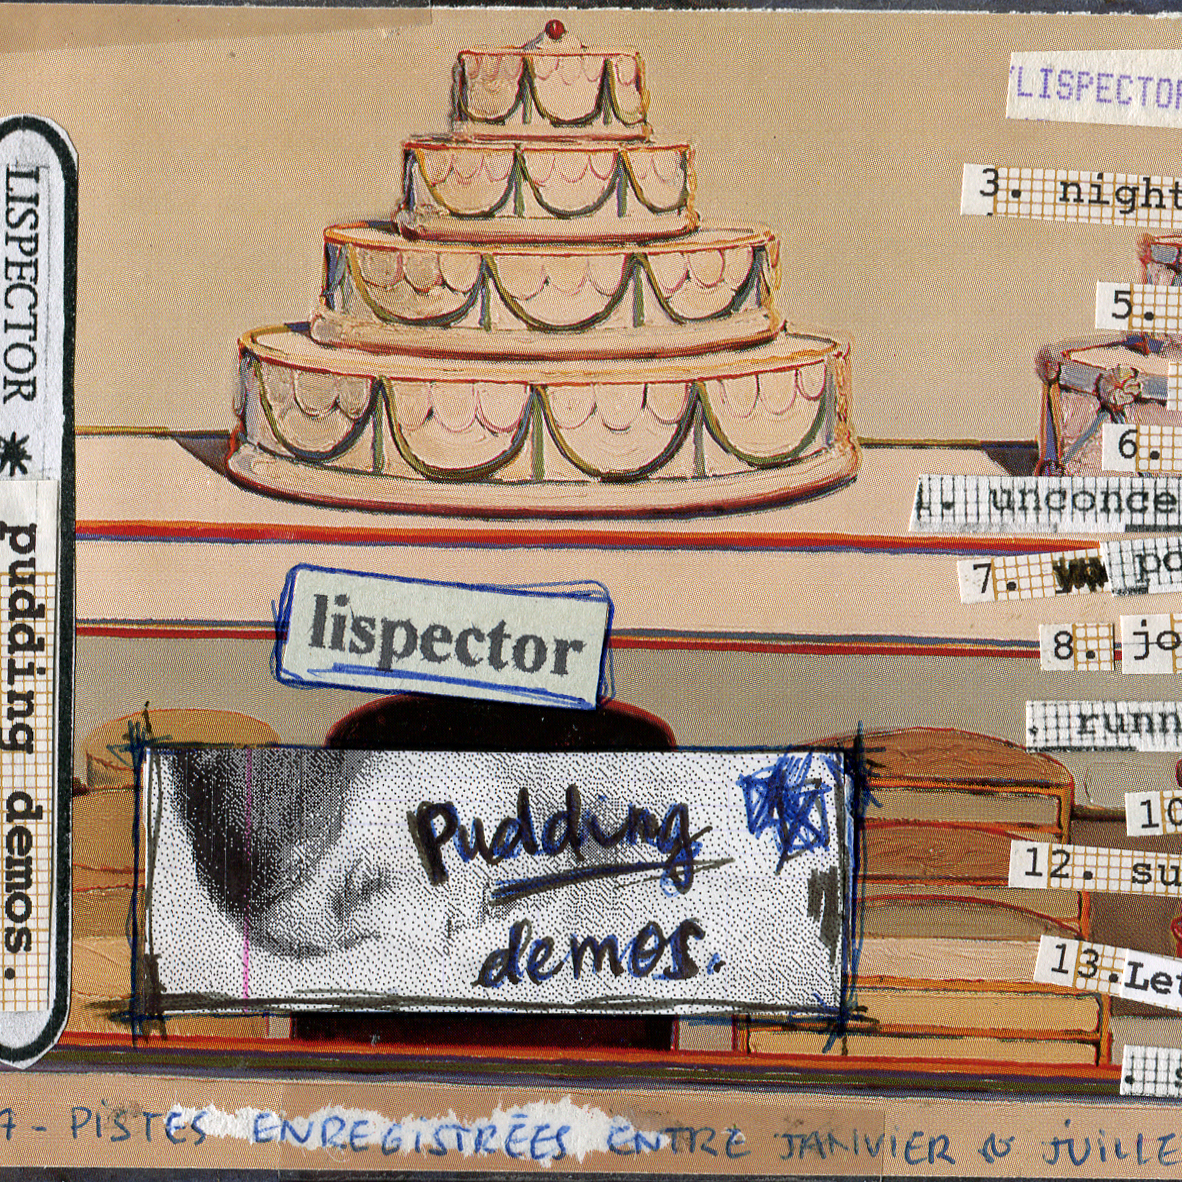 LISPECTOR * pudding demos.
lispector
Pudding
demos.
LISPECTOR
3. night
5.
6.
1. unconce
7. po
8. jo
. runn
10
12. su
13. Let
. s
7 - PISTES ENREGISTRÉES ENTRE JANVIER & JUILLE